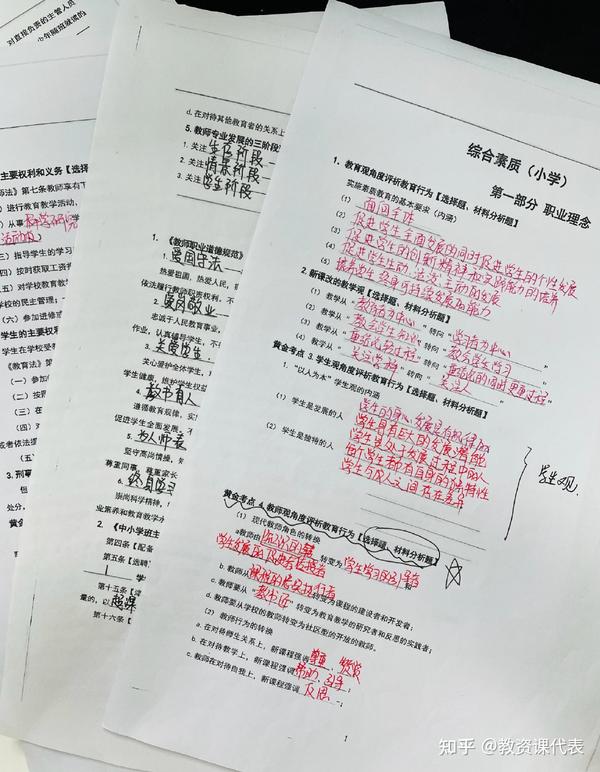 对直接负责的主管人员
主要权利和义务【选择
师法》第七条教师享有下
）进行教育教学活动、
）从事科学研究
）指导学生的学习
四）按时获取工资
五）对学校教育教
学校的民主管理；
（六）参加进修或
学生的主要权利
学生在学校受
《教育法》第
（一）参加
（二）按
（三）在
（四）对
或者依法提
3. 刑事
处分。
黄金
d. 在对待其他教育者的关系上
5. 教师专业发展的三阶段
1. 关注生存阶段
2. 关注情景阶段
3. 关注学生阶段
1. 《教师职业道德规范》
1. 爱国守法
热爱祖国，热爱人民，
依法履行教师职责权利。不
2. 爱岗敬业
忠诚于人民教育事业，
作业，认真辅导学生。不
3. 关爱学生
关心爱护全体学生，
学生健康，维护学生权益
4. 教书育人
遵循教育规律，实
促进学生全面发展。不
5. 为人师表
坚守高尚情操，知
尊重同事，尊重家长
6. 终身学习
崇尚科学精神，
业素养和教育教学水
2. 《中小学班主
第四条【配备
第五条【选聘
学
第十五条
量的，以超课
第十六条
综合素质（小学）
第一部分 职业理念
1. 教育观角度评析教育行为【选择题、材料分析题】
实施素质教育的基本要求（内涵）
（1）面向全体
（2）促进学生全面发展的同时促进学生的个性发展
（3）促进学生的创新精神和实践能力的培养
（4）促进学生生动、活泼、主动的发展
（5）培养学生终身可持续发展的能力
2. 新课改的教学观【选择题、材料分析题】
（1）教学从“教师为中心”转向“学习为中心”
（2）教学从“教会学生知识”转向“教会学生学习”
（3）教学从“重结论轻过程”转向“重结论的同时更重过程”
（4）教学从“关注学科”转向“关注人”
黄金考点 3. 学生观角度评析教育行为【选择题、材料分析题】
1. “以人为本”学生观的内涵
（1）学生是发展的人
学生的身心发展是有规律的
学生具有巨大的发展潜能
学生是处于发展过程中的人
（2）学生是独特的人
每个学生都有自身的独特性
学生与成人之间存在差异
学生观.
黄金考点 4. 教师观角度评析教育行为【选择题、材料分析题】
（1）现代教师角色的转换
a教师由知识的传授者转变为学生学习的引导者和
学生发展的促进者
b. 教师从课程的忠实执行者转变为课程的建设者和开发者；
c. 教师要从“教书匠”转变为教育教学的研究者和反思的实践者；
d. 教师要从学校的教师转变为社区型的开放的教师。
（2）教师行为的转换
a. 在对待师生关系上，新课程强调尊重、赞赏
b. 在对待教学上，新课程强调帮助、引导；
c. 教师在对待自我上，新课程强调反思；
1
知乎 @教资课代表